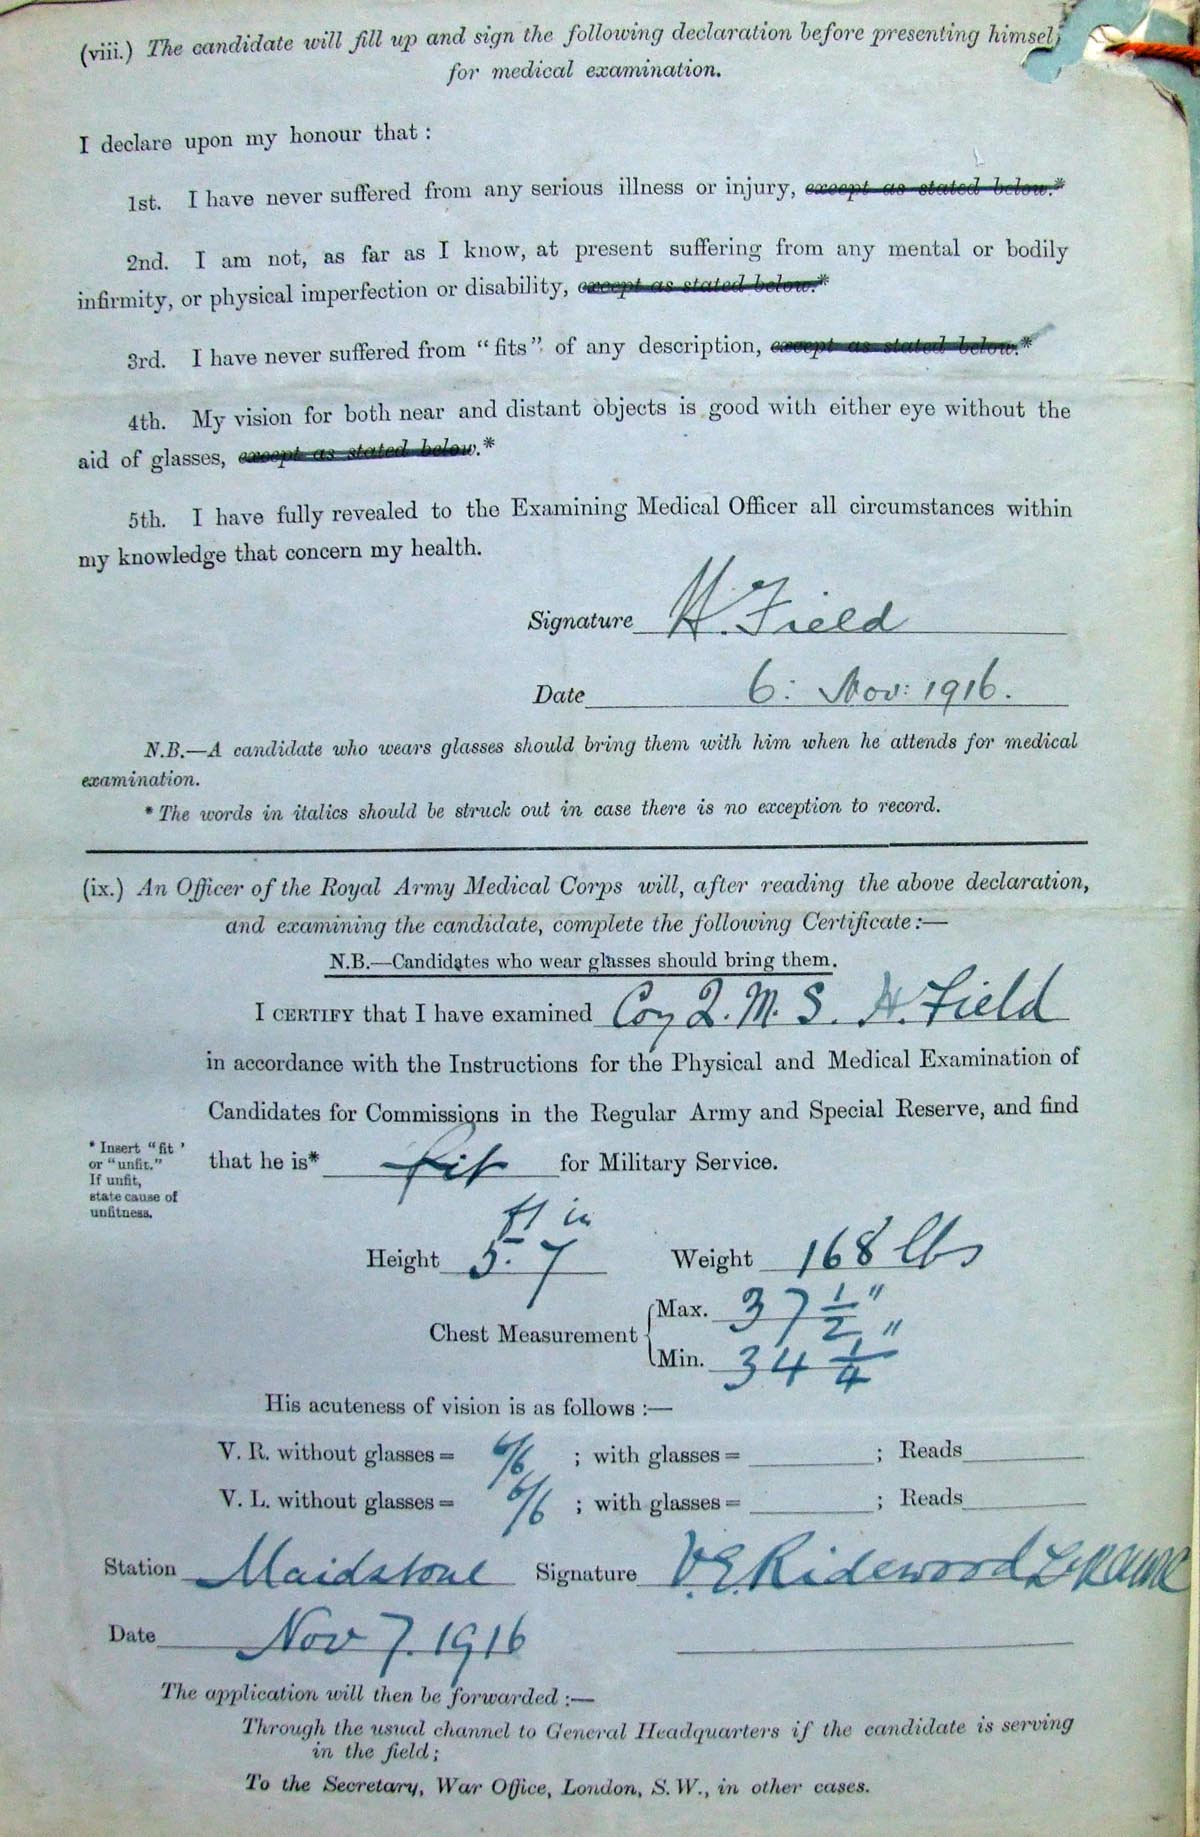 (viii.) The candidate will fill up and sign the following declaration before presenting himself
for medical examination.
I declare upon my honour that :
1st. I have never suffered from any serious illness or injury, except as stated below.*
2nd. I am not, as far as I know, at present suffering from any mental or bodily
infirmity, or physical imperfection or disability, except as stated below.*
3rd. I have never suffered from “fits” of any description, except as stated below.*
4th. My vision for both near and distant objects is good with either eye without the
aid of glasses, except as stated below.*
5th. I have fully revealed to the Examining Medical Officer all circumstances within
my knowledge that concern my health.
Signature H. Field
Date 6: Nov: 1916.
N.B.—A candidate who wears glasses should bring them with him when he attends for medical
examination.
* The words in italics should be struck out in case there is no exception to record.
(ix.) An Officer of the Royal Army Medical Corps will, after reading the above declaration,
and examining the candidate, complete the following Certificate :—
N.B.—Candidates who wear glasses should bring them.
I CERTIFY that I have examined Coy Q. M. S. H. Field
in accordance with the Instructions for the Physical and Medical Examination of
Candidates for Commissions in the Regular Army and Special Reserve, and find
that he is* fit for Military Service.
* Insert “fit ’
or “unfit.”
If unfit,
state cause of
unfitness.
ft in
Height 5. 7 Weight 168 lbs
Chest Measurement
Max. 37 1/2"
Min. 34 1/4"
His acuteness of vision is as follows :—
V. R. without glasses = 6/6 ; with glasses = ; Reads
V. L. without glasses = 6/6 ; with glasses = ; Reads
Station Maidstone Signature V.E. Ridewood Lt RAMC
Date Nov 7. 1916
The application will then be forwarded :—
Through the usual channel to General Headquarters if the candidate is serving
in the field ;
To the Secretary, War Office, London, S. W., in other cases.